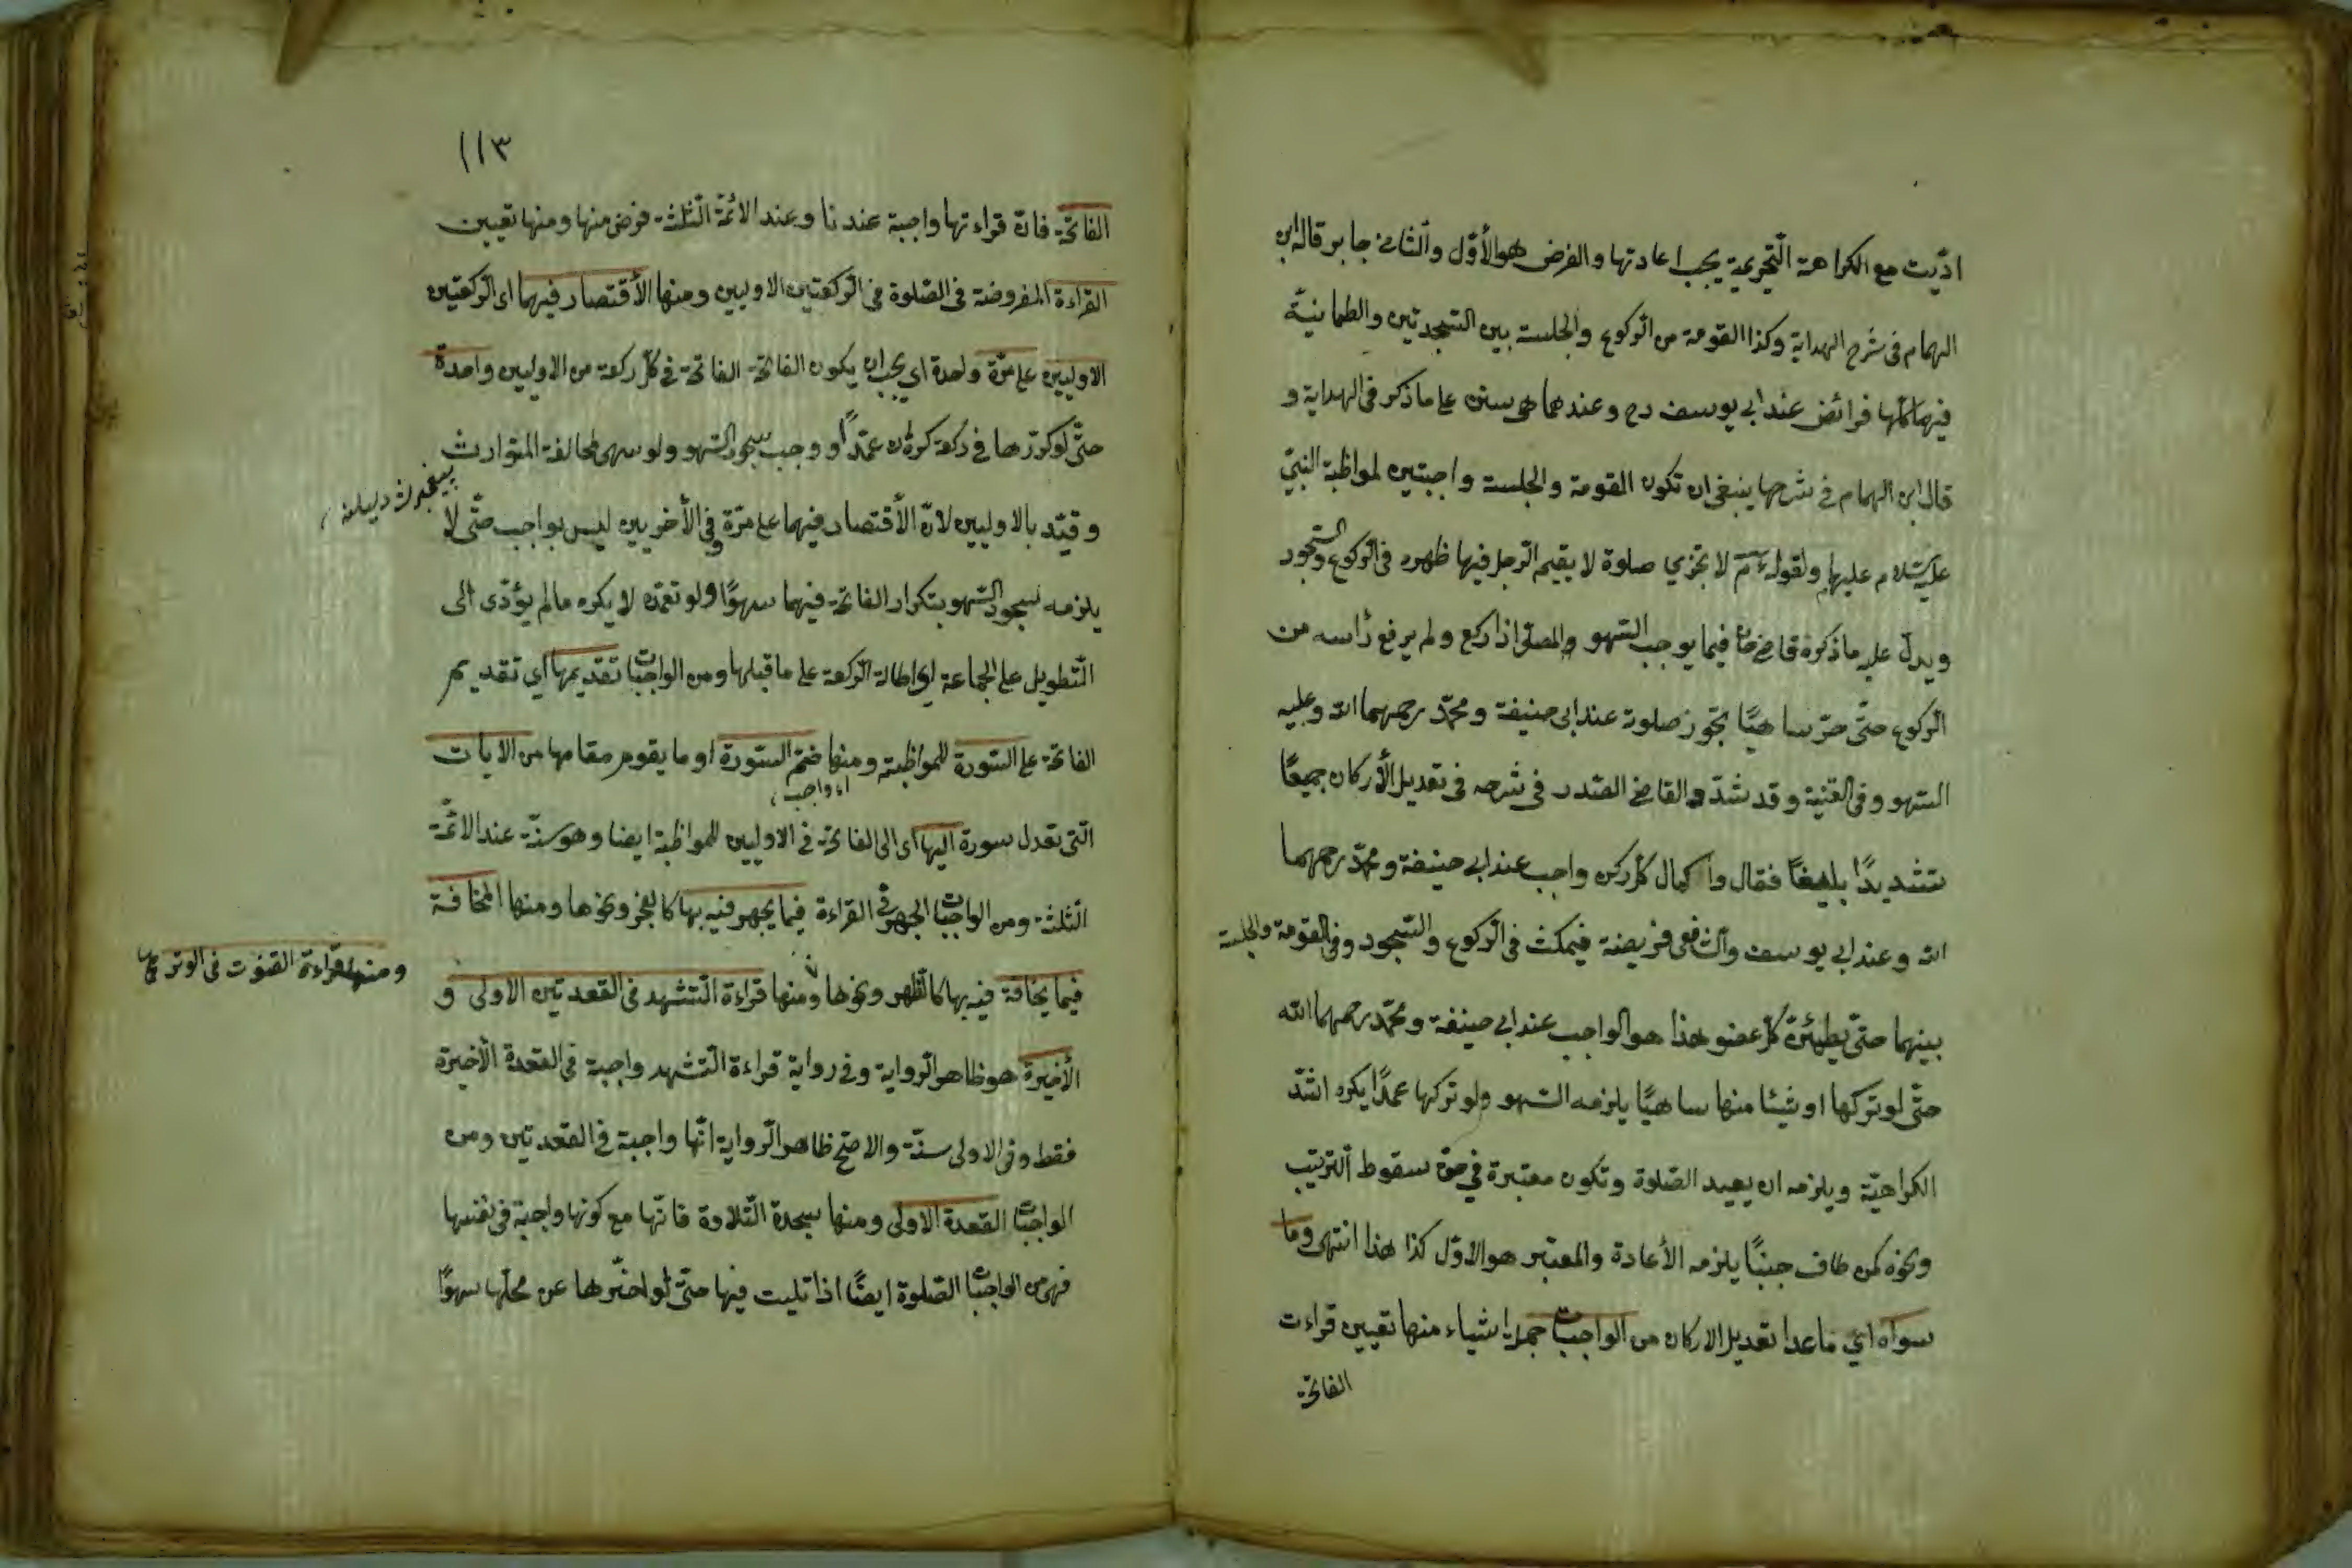 ادّيت مع الكراهة التّحريمية يجب اعادتها والفرض هو الأوّل والثانى جابر قاله ابن
الهمام فى شرح الهداية وكذا القومة من الرّكوع والجلسة بين السّجدتين والطمانيّة
فيهما كلّها فرائض عند ابى يوسف رح وعندهما هى سنن على ما ذكر فى الهداية و
قال ابن الهمام فى شرحها ينبغى ان تكون القومة والجلسة واجبتين لمواظبة النبىّ
عليه السّلام عليها ولقوله عم لا تجزي صلوة لا يقيم الرّجل فيها ظهره فى الرّكوع والسّجود
ويدلّ عليه ما ذكره قاضخان فيما يوجب السّهو والمصلّى اذا ركع ولم يرفع رأسه من
الرّكوع حتّى خرّ ساهيًا تجوز صلوته عند ابى حنيفة ومحمّد رحمهما الله وعليه
السّهو وفى القنية وقد شدّد القاضى الصّدر فى شرحه فى تعديل الأركان جميعًا
تشديدًا بليغًا فقال واكمال كلّ ركن واجب عند ابى حنيفة ومحمّد رحمهما
الله وعند ابى يوسف والشافعى فريضة فيمكث فى الرّكوع والسّجود وفى القومة والجلسة
بينهما حتّى يطمئنّ كلّ عضو هذا هو الواجب عند ابى حنيفة ومحمّد رحمهما الله
حتّى لو تركها او شيئا منها ساهيًا يلزمه السّهو ولو تركها عمدًا يكره اشدّ
الكراهيّة ويلزمه ان يعيد الصّلوة وتكون معتبرة فى حقّ سقوط التّرتيب
ونحوه كمن طاف جنبًا يلزمه الأعادة والمعتبر هو الاوّل كذا هذا انتهى وما
سواه اي ما عدا تعديل الاركان من الواجبات جملة اشياء منها تعيين قراءت
الفاتحة
١١٣
الفاتحة فانّ قراءتها واجبة عندنا وعند الائمّة الثّلثة فرض منها ومنها تعيين
القراءة المفروضة فى الصّلوة فى الرّكعتين الاوليين ومنها الأقتصار فيهما اى الرّكعتين
الاوليين على مرّة واحدة اي يجب ان يكون الفاتحة الفاتحة فى كلّ ركعة من الاوليين واحدة
حتّى لو كرّرها فى ركعة كره ان عمدًا ووجب سجود السّهو ولو سهى لمخالفة المتوارث
پيغمبردن ديلنه
وقيّد بالاوليين لانّ الأقتصار فيهما على مرّة وفى الأخريين ليس بواجب حتّى لا
يلزمه سجود السّهو بتكرار الفاتحة فيهما سهوًا ولو تعمّده لا يكره ما لم يؤدّى الى
التّطويل على الجماعة اى اطالة الرّكعة على ما قبلها ومن الواجبات تقديمها اي تقديم
الفاتحة على السّورة للمواظبة ومنها ضمّ السّورة او ما يقوم مقامها من الايات
اى واجب
الّتى تعدل سورة اليها اى الى الفاتحة فى الاوليين للمواظبة ايضا وهو سنّة عند الائمّة
الثّلثة ومن الواجبات الجهر فى القراءة فيما يجهر فيه بها كالفجر ونحوها ومنها المخافة
ومنها قراءة القنوت فى الوتر
فيما يخافة فيه بها كالظهر ونحوها ومنها قراءة التّشهد فى القعدتين الاولى و
الأخيرة هو ظاهر الرّواية وفى رواية قراءة التّشهد واجبة فى القعدة الأخيرة
فقط وفى الاولى سنّة والاصحّ ظاهر الرّواية انّها واجبة فى القعدتين ومن
الواجبات القعدة الاولى ومنها سجدة التّلاوة فانّها مع كونها واجبة فى نفسها
فهى من الواجبات الصّلوة ايضًا اذا تليت فيها حتّى لو اخّرها عن محلّها سهوًا